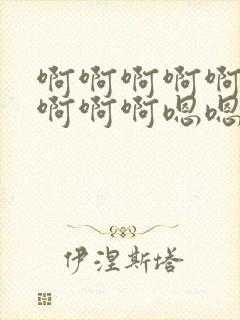 啊啊啊啊啊
啊啊啊嗯嗯
伊涅斯塔